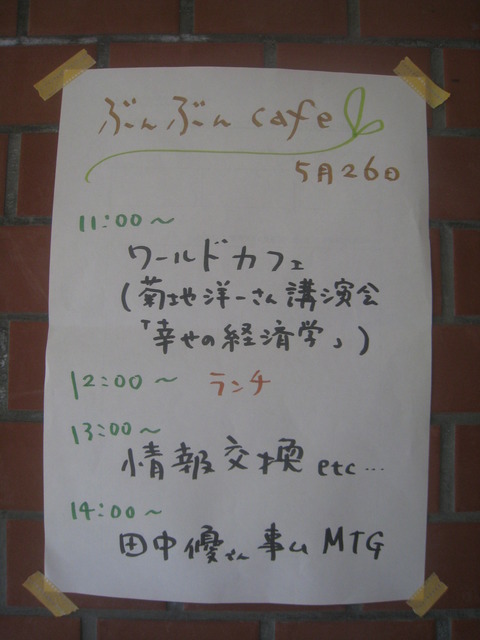 ぶんぶん cafe
5月26日
11:00〜
ワールドカフェ
(菊地洋一さん講演会
「幸せの経済学」)
12:00〜 ランチ
13:00〜
情報交換 etc…
14:00〜
田中優さん事ム MTG